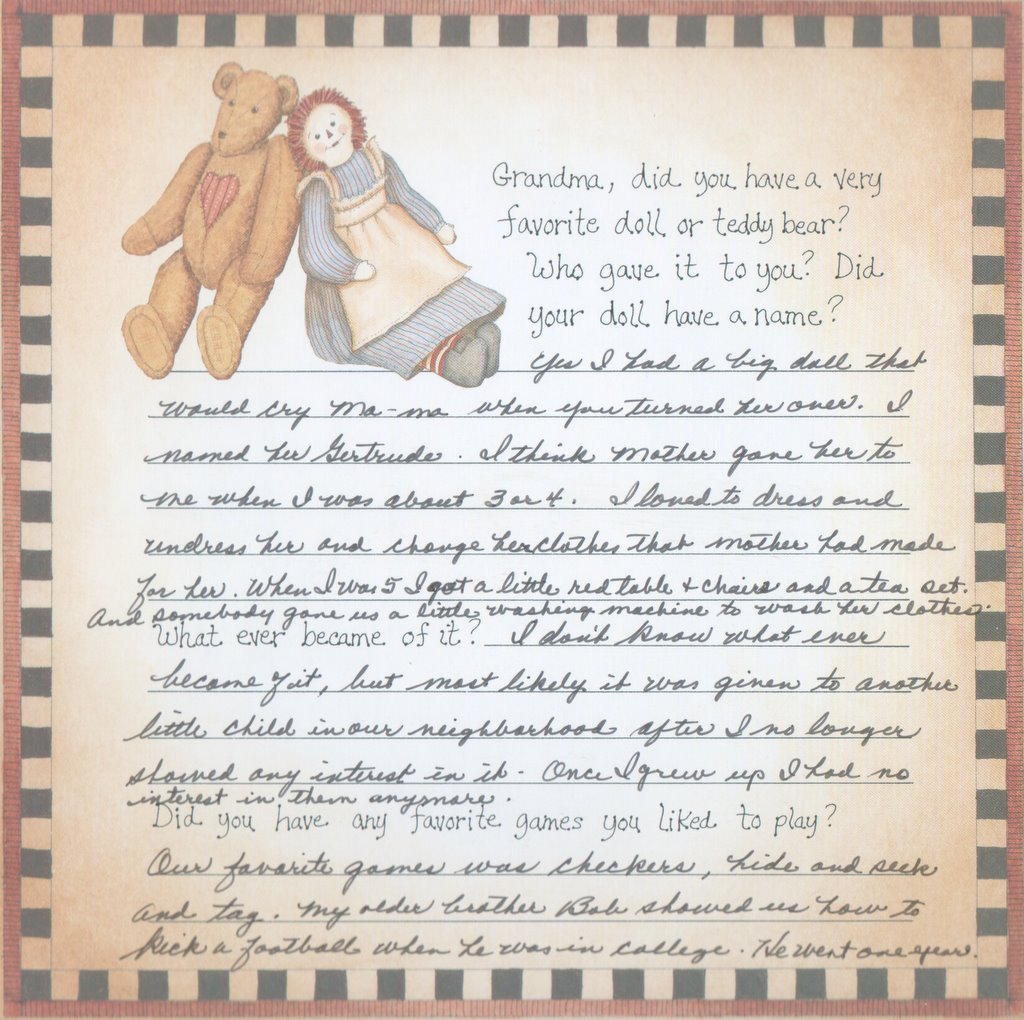 Grandma, did you have a very
favorite doll or teddy bear?
Who gave it to you? Did
your doll have a name?
Yes I had a big doll that
would cry Ma-ma when you turned her over. I
named her Gertrude. I think Mother gave her to
me when I was about 3 or 4. I loved to dress and
undress her and change her clothes that mother had made
for her. When I was 5 I got a little red table + chairs and a tea set.
And somebody gave us a little washing machine to wash her clothes.
What ever became of it? I don't know what ever
became of it, but most likely it was given to another
little child in our neighborhood after I no longer
showed any interest in it - Once I grew up I had no
interest in them anymore.
Did you have any favorite games you liked to play?
Our favorite games was checkers, hide and seek
and tag. My older brother Bob showed us how to
kick a football when he was in college. He went one year.